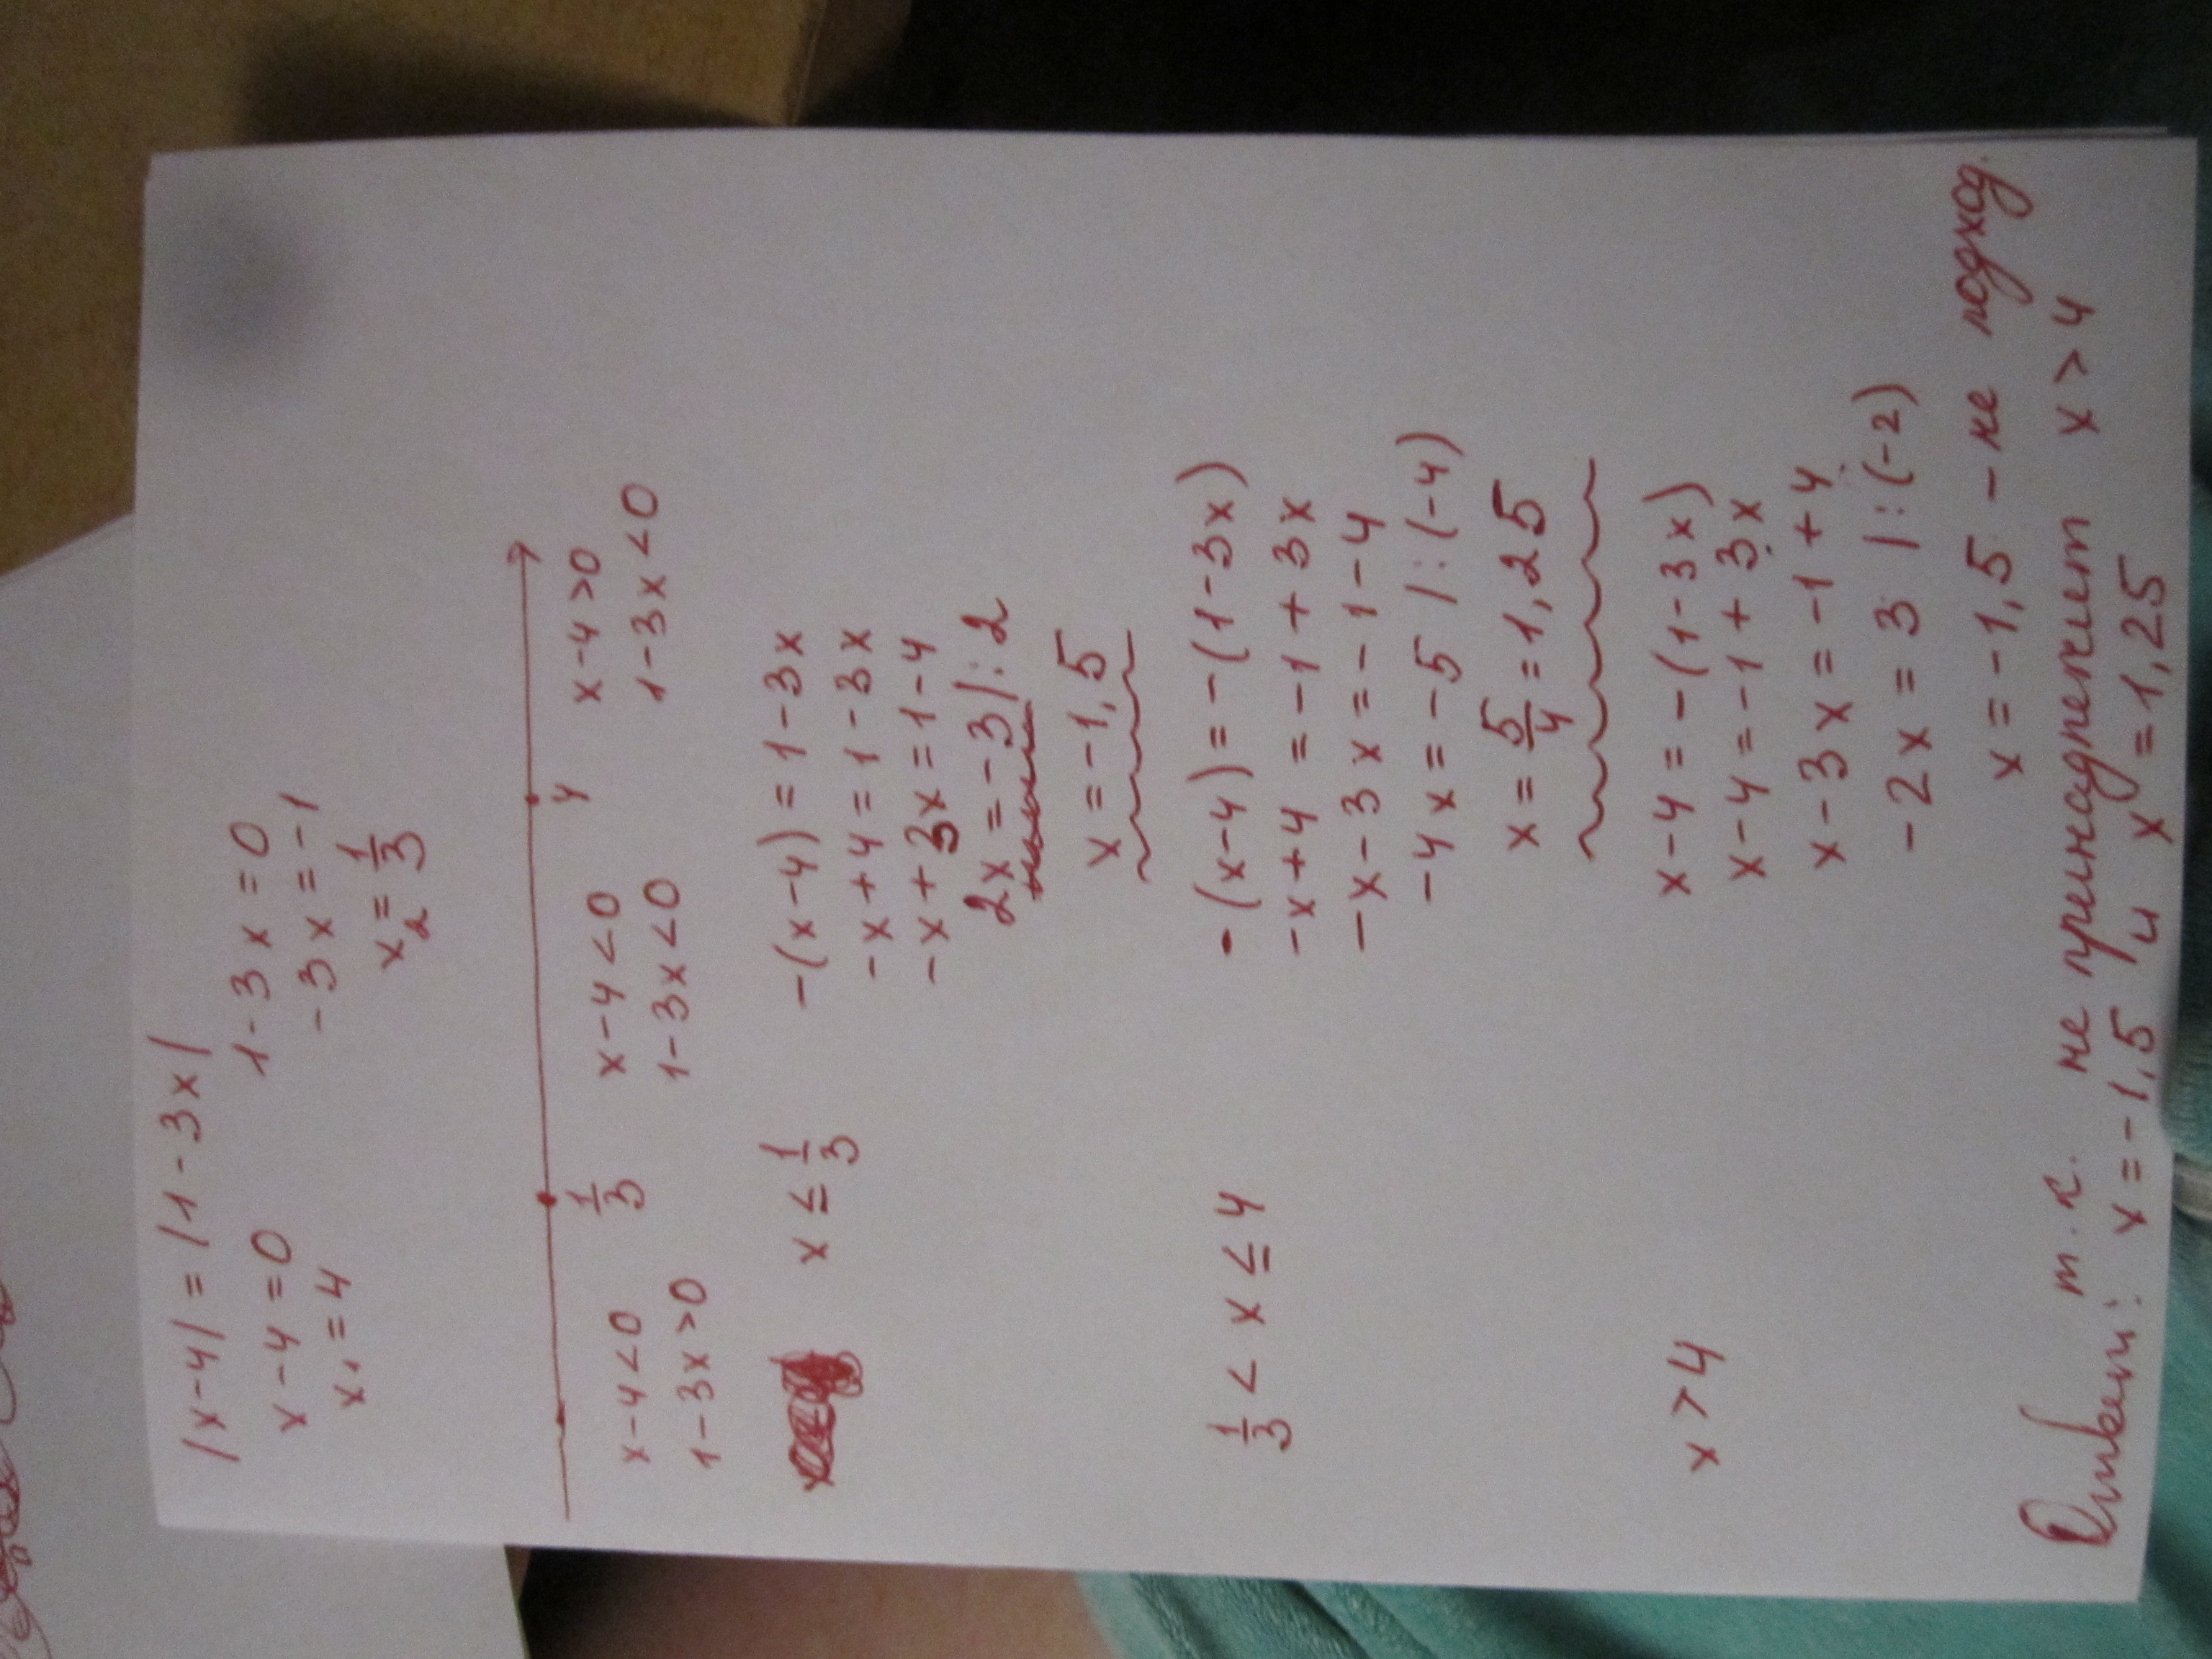 |x-4| = |1-3x|
x-4=0 1-3x=0
x₁=4 -3x=-1
x₂=1/3
1/3 4
x-4<0 x-4<0 x-4>0
1-3x>0 1-3x<0 1-3x<0
x≤1/3 -(x-4)=1-3x
-x+4=1-3x
-x+3x=1-4
2x=-3|:2
x=-1,5
1/3<x≤4 -(x-4)=-(1-3x)
-x+4=-1+3x
-x-3x=-1-4
-4x=-5 |:(-4)
x=5/4=1,25
x>4 x-4=-(1-3x)
x-4=-1+3x
x-3x=-1+4
-2x=3 |:(-2)
x=-1,5 - не подход.
т.к. не принадлежит x>4
Ответ: x=-1,5 и x=1,25